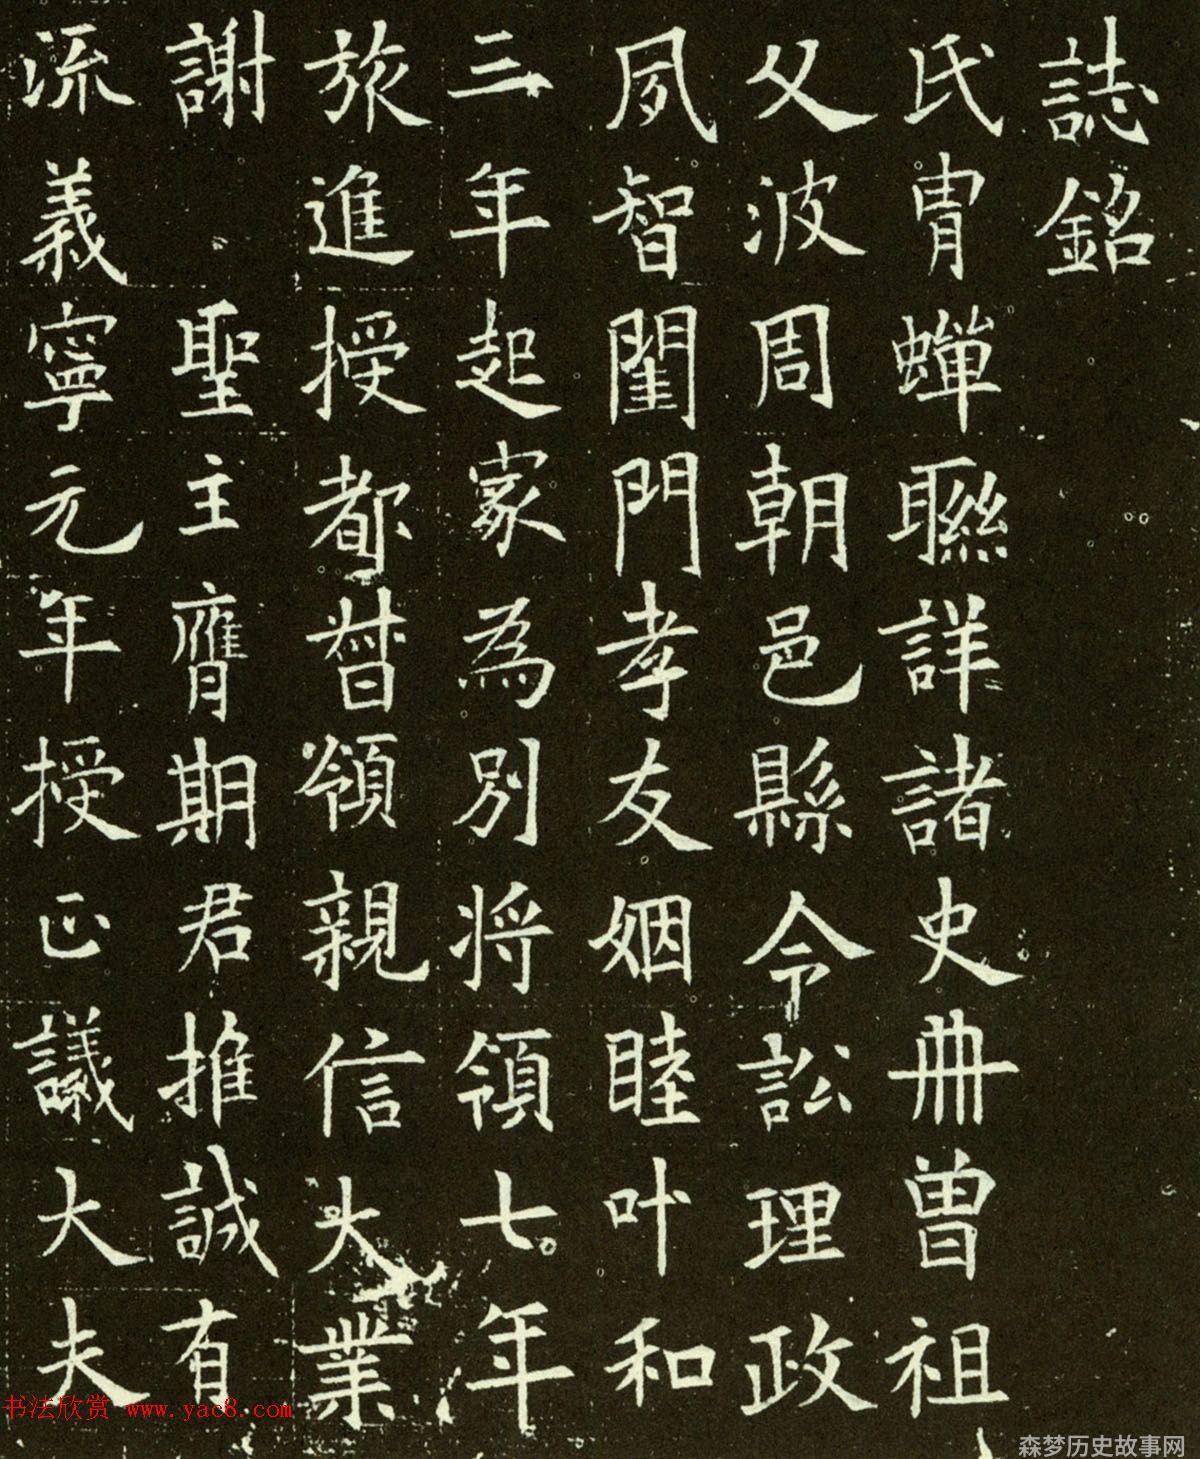 誌銘
氏胄蟬聯詳諸史冊曾祖
父波周朝邑縣令訟理政
夙智閨門孝友姻睦叶和
三年起家為別將領七年
旅進授都督領親信大業
謝聖主膺期君推誠有
流義寧元年授正議大夫
书法欣赏 www.yac8.com
森梦历史故事网